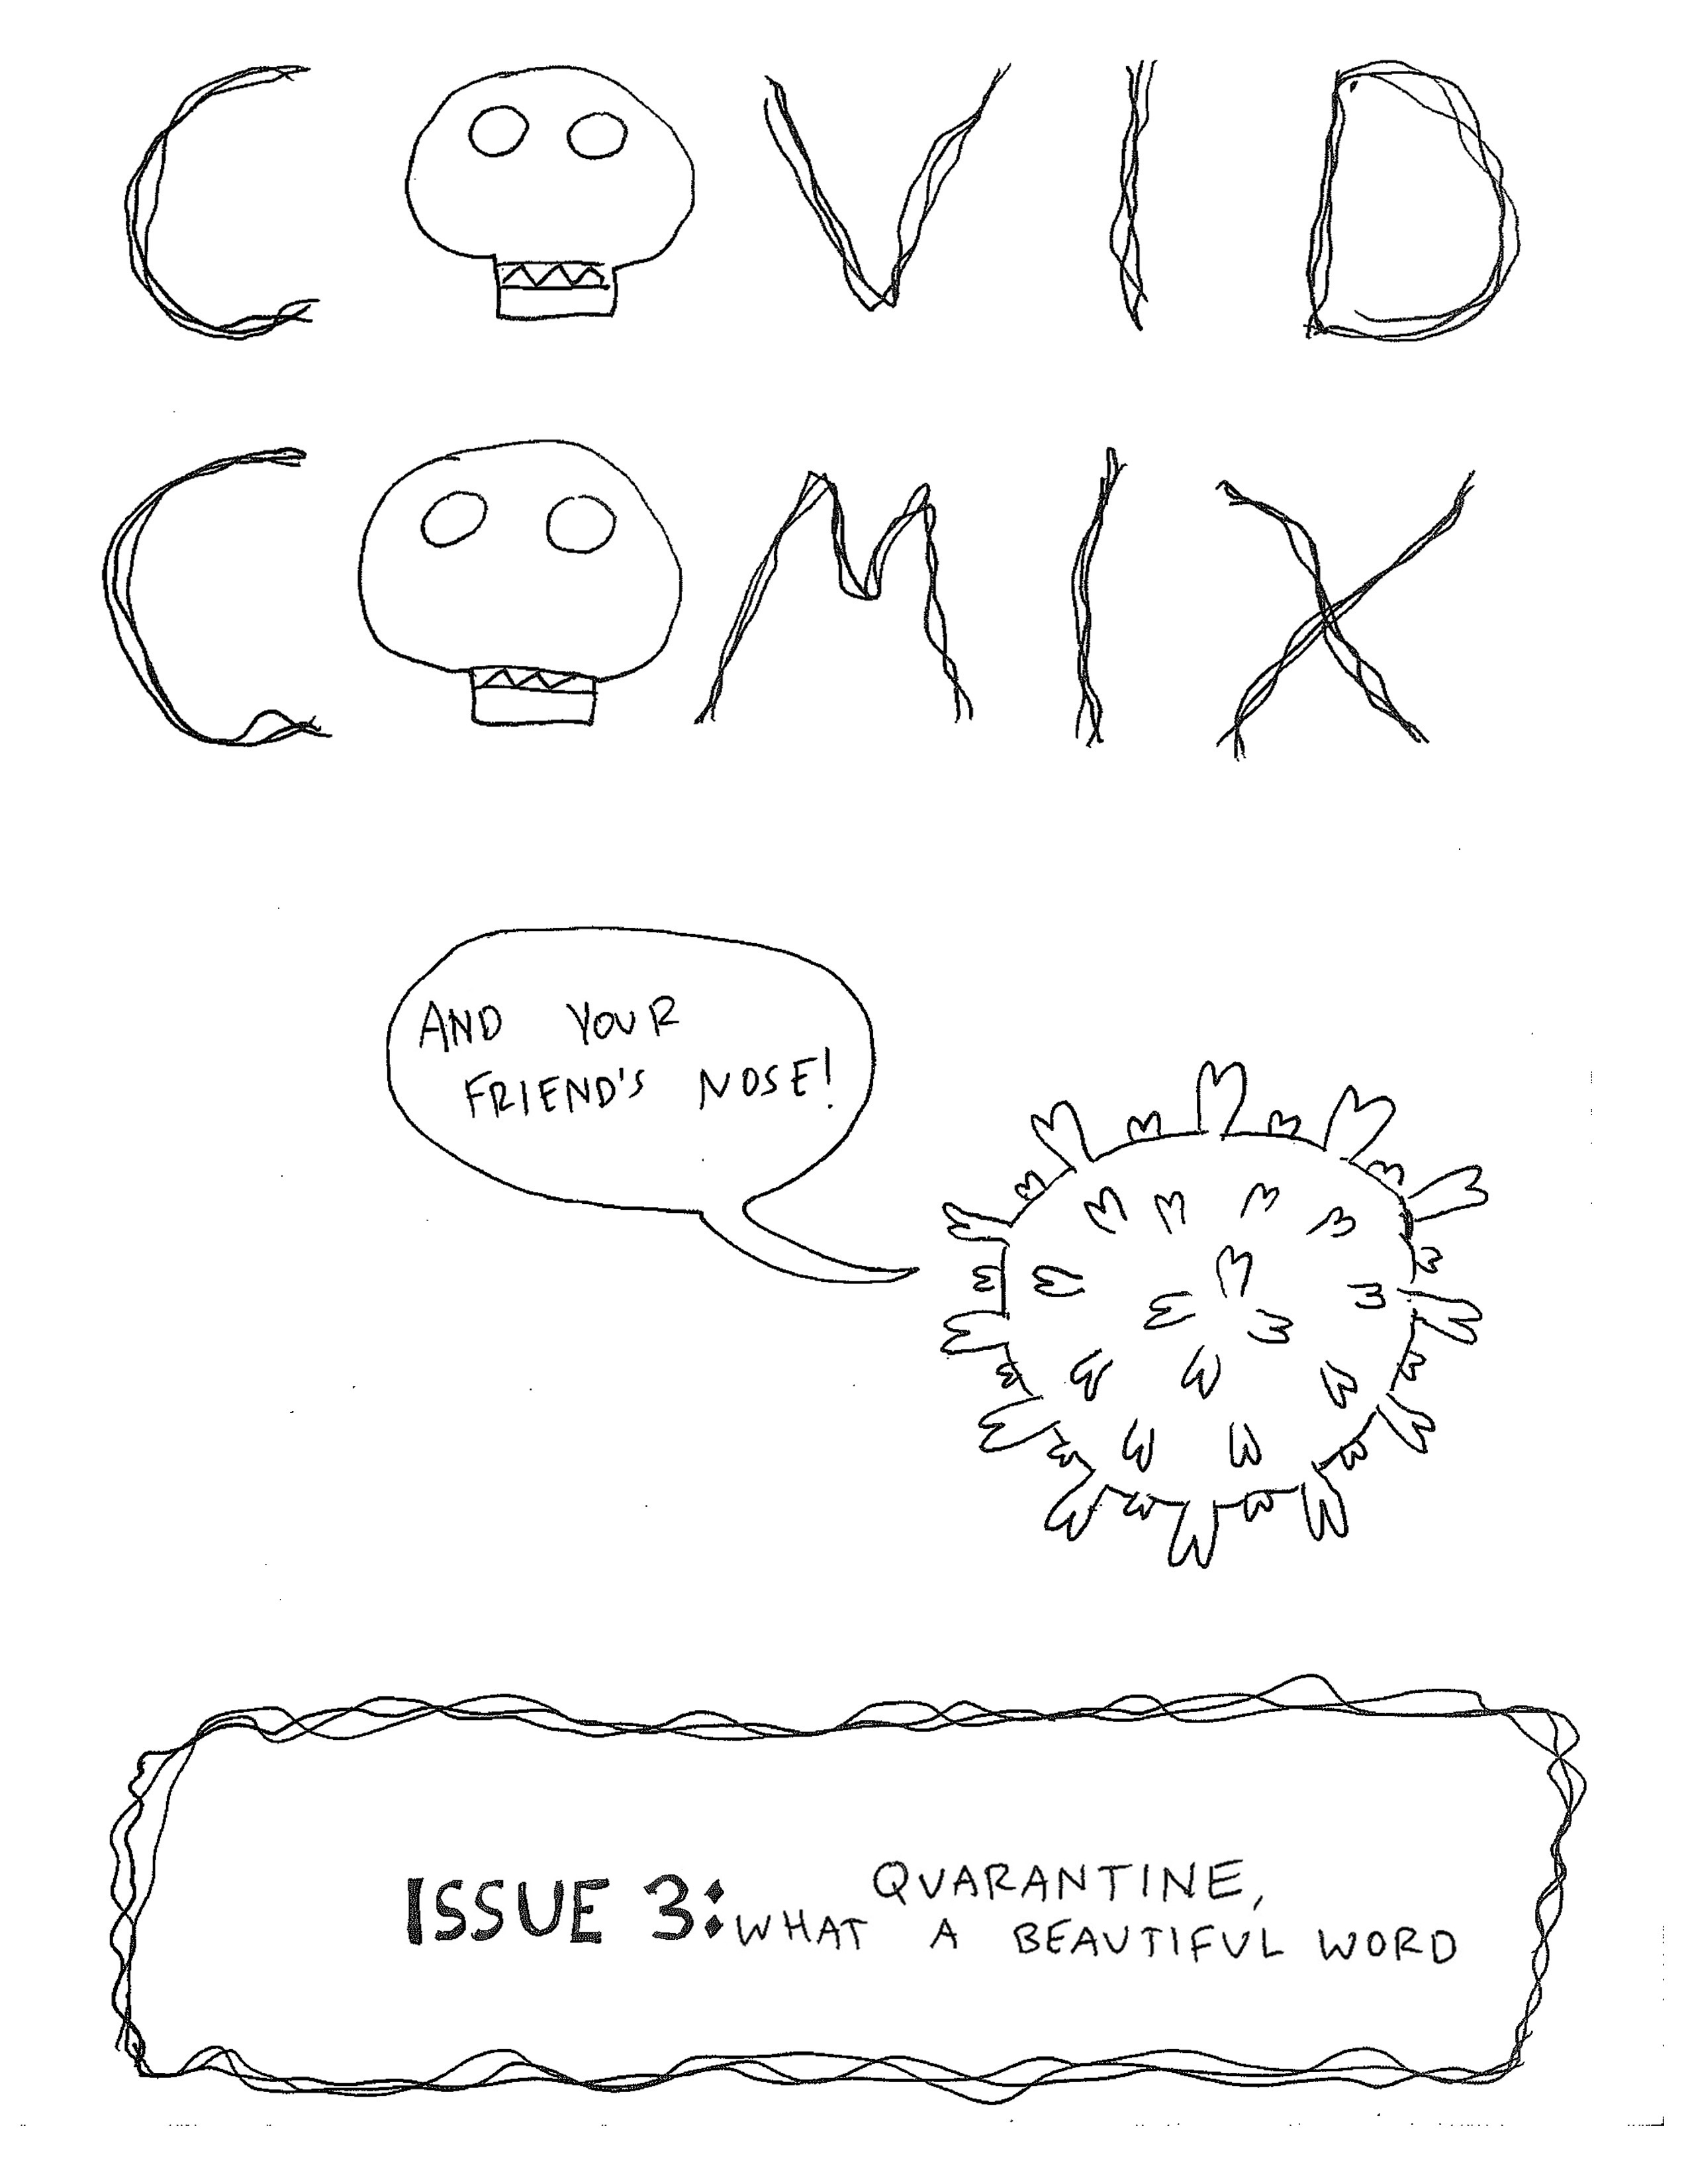 COVID
COMIX
AND YOUR
FRIEND'S NOSE!
ISSUE 3: QUARANTINE,
WHAT A BEAUTIFUL WORD